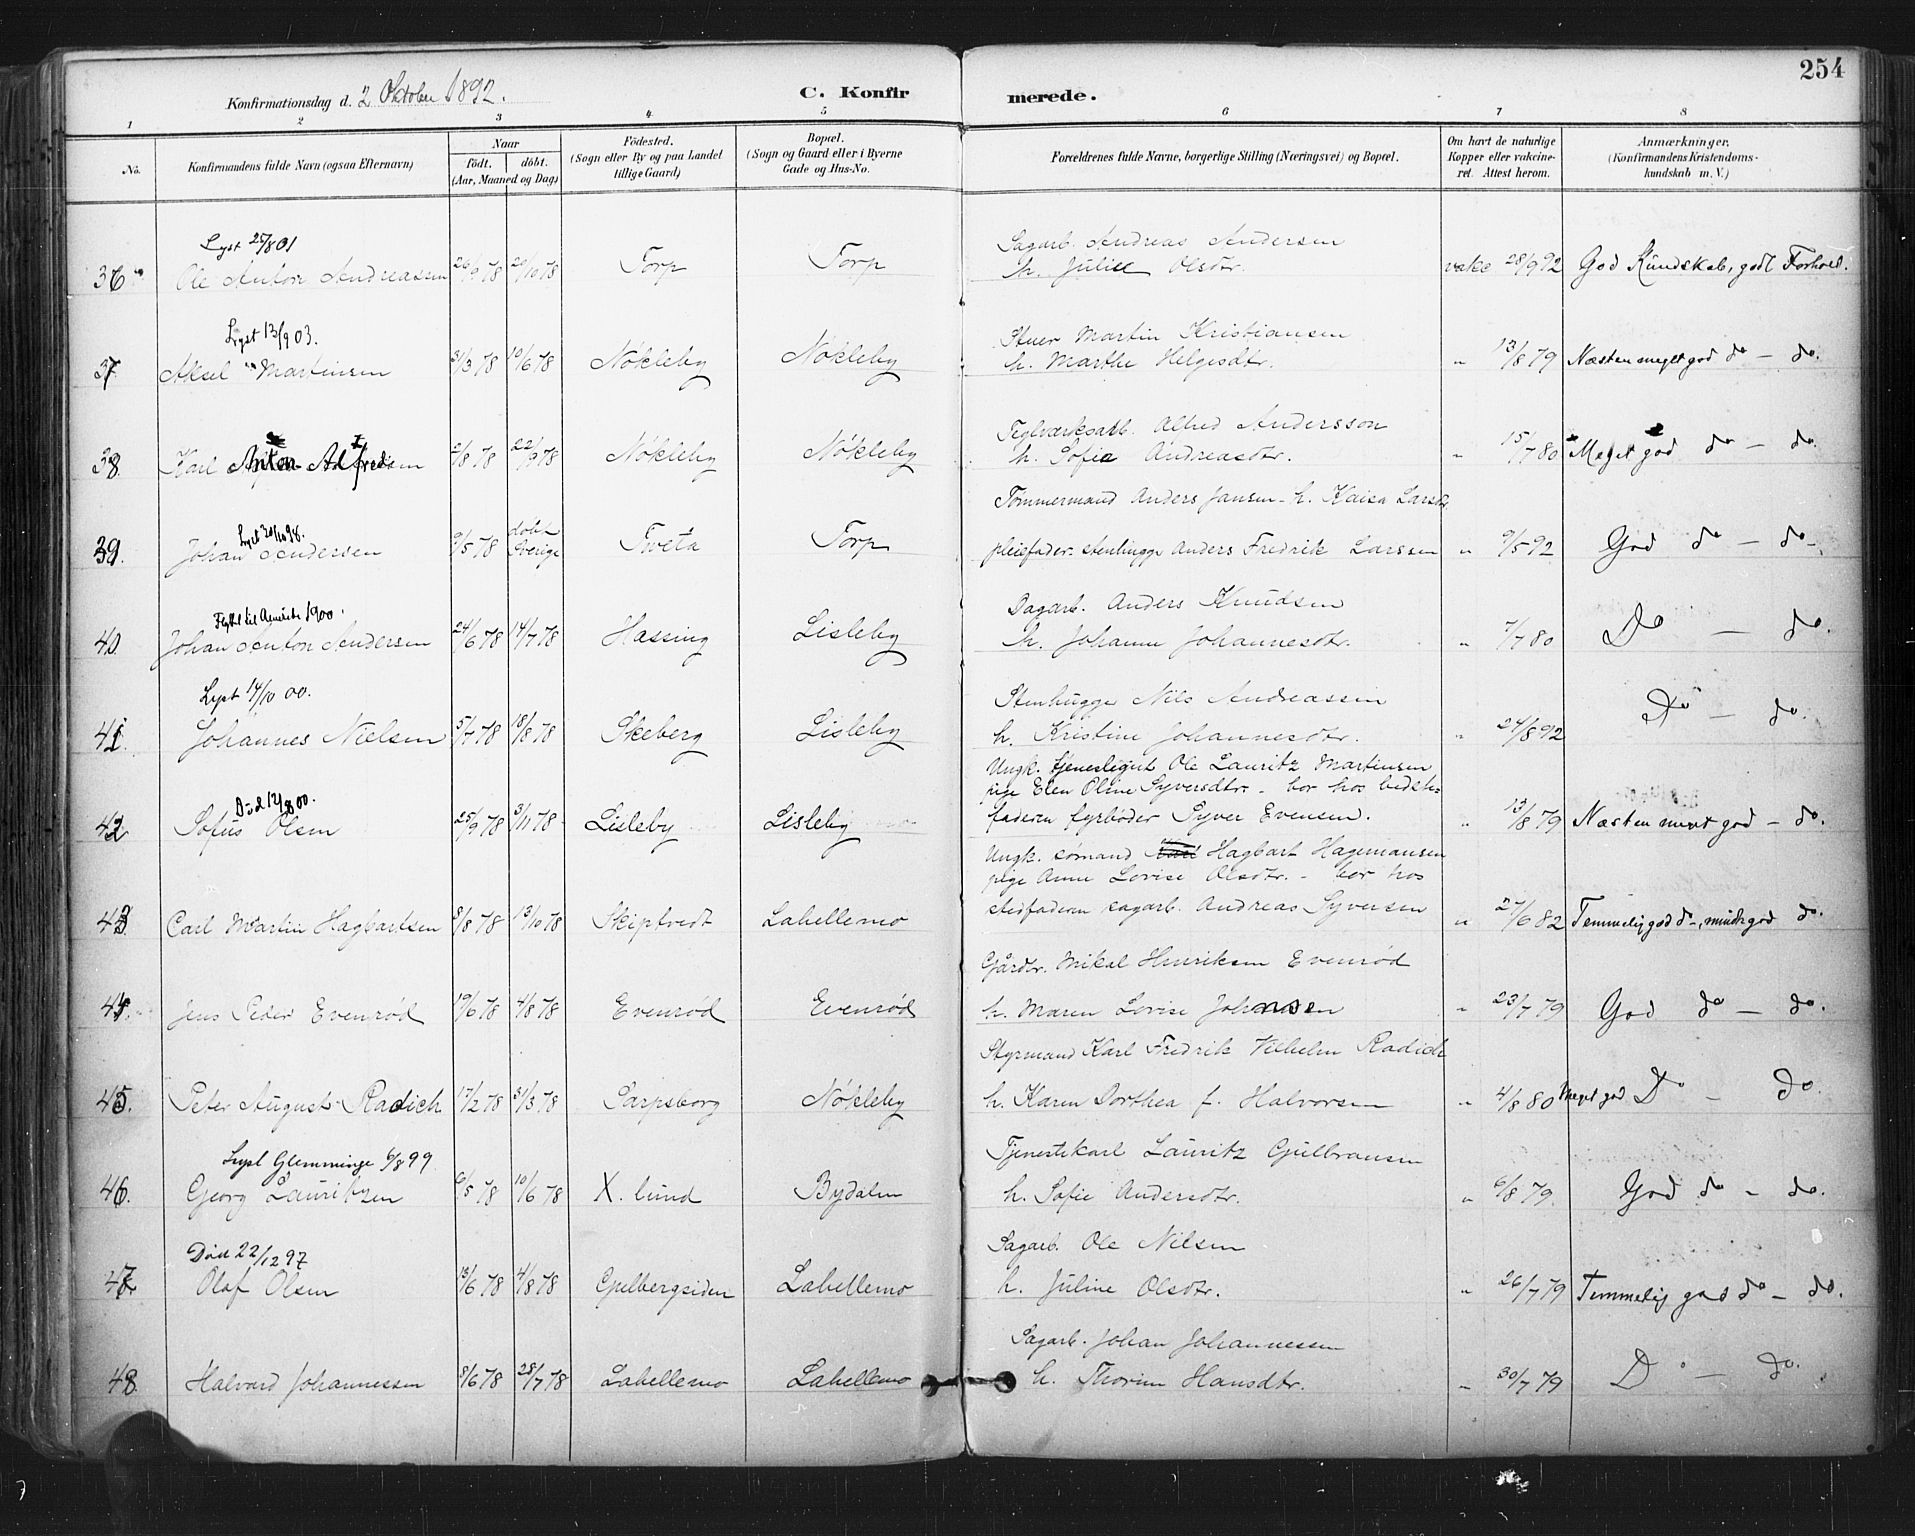 254
Konfirmationsdag d. 2 Oktober 1892.
C. Konfirmerede.
1 2 3 4. 5 6 7 8
No.
Konfirmandens fulde Navn (ogsaa Efternavn)
Naar
födt. döbt.
(Aar, Maaned og Dag)
Födested.
(Sogn eller By og paa Landet
tillige Gaard)
Bopæl.
(Sogn og Gaard eller i Byerne
Gade og Hus-No.
Forældrenes fulde Navne, borgerlige Stilling (Næringsvei) og Bopæl.
Om havt de naturlige
Kopper eller vakcine-
ret. Attest herom.
Anmærkninger.
(Konfirmandens Kristendoms-
kundskab m. V.)
Lyst 25/8 01
Sagarb. Andreas Andersen
36 Ole Anton Andreassen 26/9 78 20/10 78 Torp Torp h. Julie Olsdtr. vakc 28/9 92 God Kundskab, godt Forhold.
Lyst 13/9 03.
Stuer Martin Kristiansen
37 Aksel Martinsen 31/3 78 10/6 78 Nökleby Nökleby h. Marthe Helgesdtr. " 13/8 79 Næsten meget god do — do.
Teglværksarb. Alfred Andersson
38 Karl Anton Alfredsen 2/8 78 22/9 78 Nökleby Nökleby h. Sofie Andreasdtr. " 15/7 80 Meget god do — do.
Tømmermand Anders Jansen - h. Kaisa Larsdtr
Lyst 30/10 98.
39. Johan Andersen 9/5 78 döbt Sverige Tveta Torp pleiefader: stenhugge Anders Fredrik Larssen " 9/5 92 God do — do —
Flyttet til Amerika 1900.
Dagarb. Anders Knudsen
40. Johan Anton Andersen 24/6 78 14/7 78 Hassing Lisleby h. Johanne Johannesdtr. " 7/7 80 Do — do.
Lyst 14/10 00.
Stenhugge Nils Andreassen
41. Johannes Nielsen 5/7 78 18/8 78 Skeberg Lisleby h. Kristine Johannesdtr. " 24/8 92 Do — do.
Ungk. tjenestegut Ole Lauritz Martinsen
pige Elen Oline Syversdtr. - bor hos bedste-
Död 12/8 00.
42 Sofus Olsen 25/9 78 3/11 78 Lisleby Lisleby faderen fyrbøder Syver Evensen. " 13/8 79 Næsten meget god — do.
Ungk. sømand Hagbart Hagemansen
pige Anne Lovise Olsdtr. - bor hos
43 Carl Martin Hagbartsen 8/8 78 13/10 78 Skiptvedt Labellemo stedfaderen sagarb. Andreas Syversen " 27/6 82 Temmelig god do, mindre god do.
Gårdbr. Mikal Henriksen Evenrød
44. Jens Peder Evenrød 19/6 78 4/8 78 Evenrød Evenrød h. Maren Lovise Johansen " 23/7 79 God do — do.
Styrmand Karl Fredrik Vilhelm Radich
45. Peter August Radich 17/2 78 31/3 78 Sarpsborg Nökleby h. Karen Dorthea f. Halvorsen " 4/8 80 Meget god Do — do.
Lyst Glemminge 6/8 99
Tjenestekarl Lauritz Gulbransen
46. Georg Lauritzen 6/5 78 10/6 78 X. lund Bydalen h. Sofie Andersdtr. " 6/8 79. God do — do.
Död 22/12 97
Sagarb. Ole Nilsen
47 Olaf Olsen 13/6 78 4/8 78 Gulbergsiden Labellemo h. Juline Olsdtr. " 26/7 79 Temmelig god do — do.
Sagarb. Johan Johannessen
48 Halvard Johannessen 8/6 78 28/7 78 Labellemo Labellemo h. Thorine Hansdtr. " 30/7 79 Do — do.